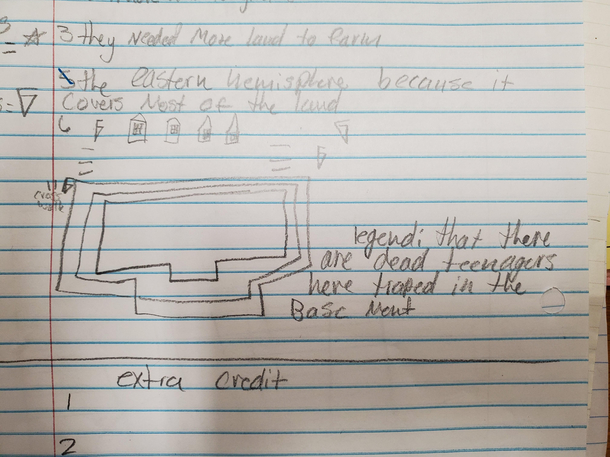 3 they needed More land to farm
5 the eastern hemisphere because it
Covers Most of the land
6
cross walk
legend; that there
are dead teenagers
here traped in the
Base Ment
extra credit
1
2